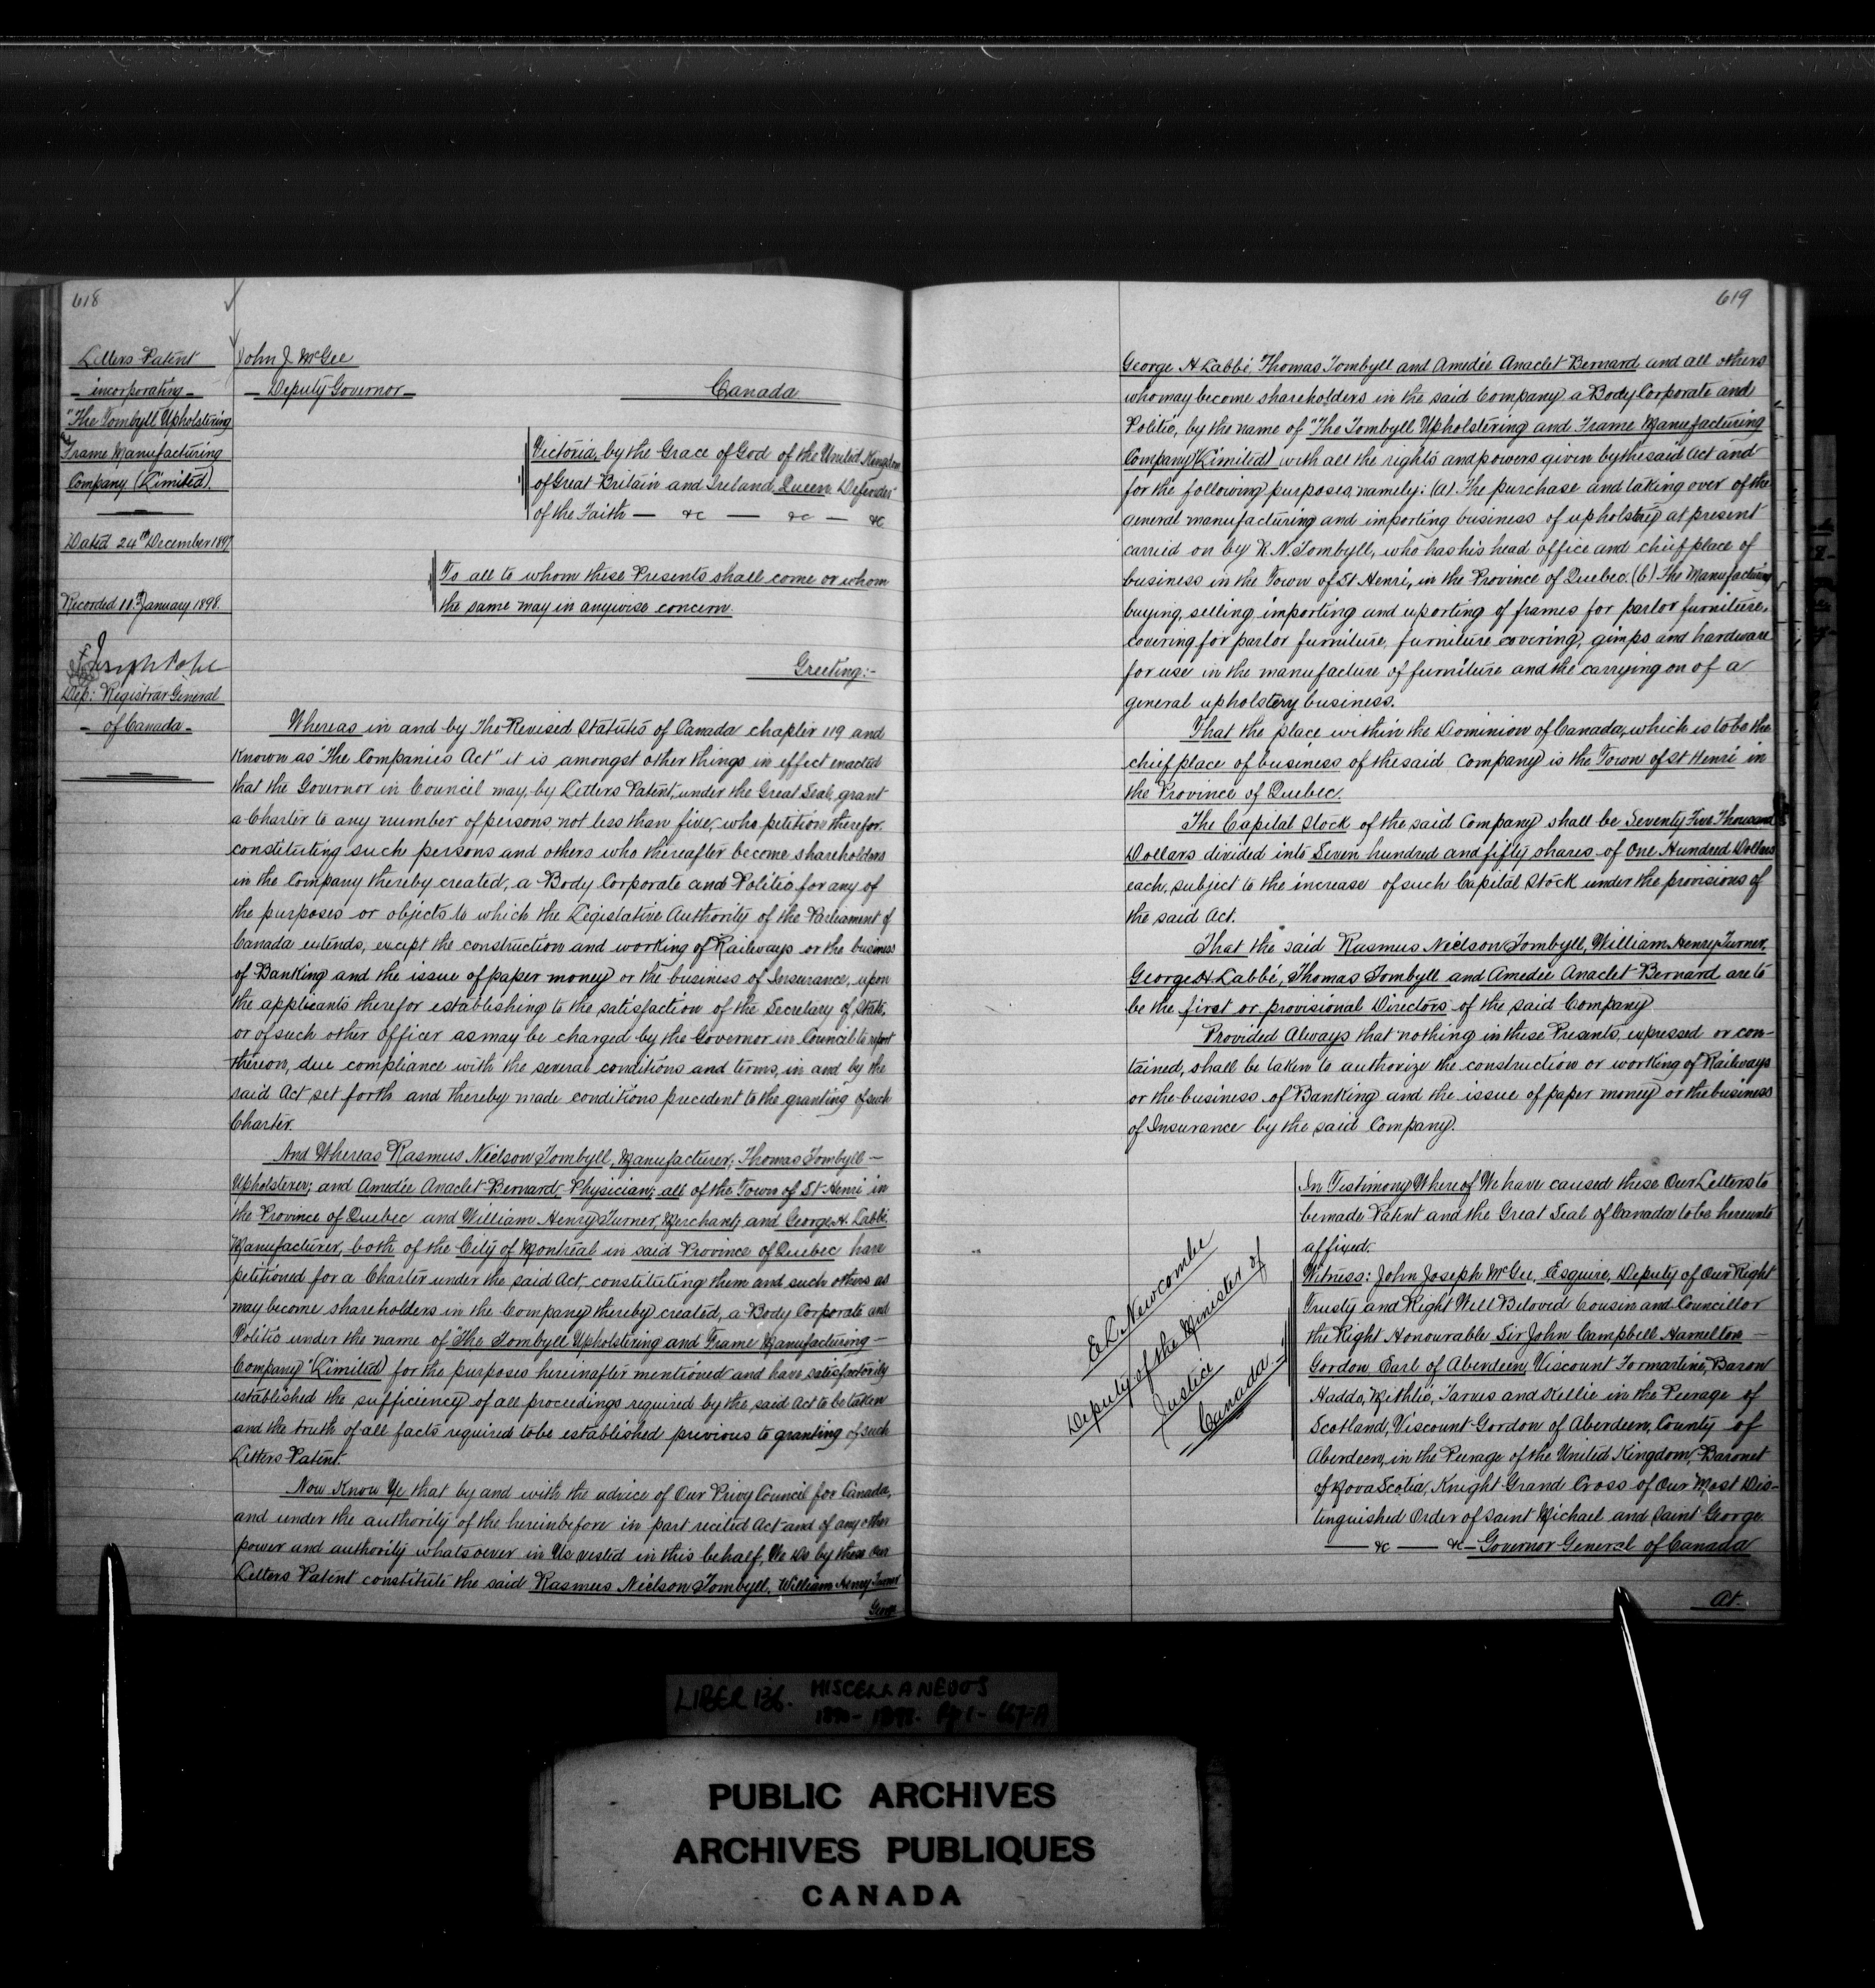 618
Letters Patent
incorporating
"The Tombyll Upholstering
& Frame Manufacturing
Company (Limited).
Dated 24th December 1897
Recorded 11th January 1898.
Joseph Pope
Dep: Registrar General
of Canada
John J. McGee
Deputy Governor
Canada
Victoria, by the Grace of God of the United Kingdom
of Great Britain and Ireland, Queen Defender
of the Faith — &c — &c — &c
To all to whom these Presents shall come or whom
the same may in anywise concern.
Greeting:-
Whereas in and by The Revised Statutes of Canada chapter 119 and
known as "The Companies Act" it is amongst other things in effect enacted
that the Governor in Council may, by Letters Patent, under the Great Seal, grant
a Charter to any number of persons not less than five, who petition therefor.
constituting such persons and others who thereafter become shareholders
in the Company thereby created, a Body Corporate and Politic for any of
the purposes or objects to which the Legislative Authority of the Parliament of
Canada extends, except the construction and working of Railways or the business
of Banking and the issue of paper money or the business of Insurance, upon
the applicants therefor establishing to the satisfaction of the Secretary of State,
or of such other Officer as may be charged by the Governor in Council to report
thereon, due compliance with the several conditions and terms, in and by the
said Act set forth and thereby made conditions precedent to the granting of such
Charter.
And Whereas Rasmus Nielson Tombyll, Manufacturer; Thomas Tombyll —
Upholsterer; and Amedée Anaclet Bernard Physician; all of the Town of St Henri in
the Province of Quebec and William Henry Turner, Merchant; and George H. Labbé,
Manufacturer, both of the City of Montreal in said Province of Quebec have
petitioned for a Charter under the said Act, constituting them and such others as
may become shareholders in the Company thereby created, a Body Corporate and
Politic under the name of "The Tombyll Upholstering and Frame Manufacturing —
Company "(Limited) for the purposes hereinafter mentioned and have satisfactorily
established the sufficiency of all proceedings required by the said Act to be taken
and the truth of all facts required to be established previous to granting of such
Letters Patent.
Now Know Ye that by and with the advice of Our Privy Council for Canada,
and under the authority of the hereinbefore in part recited Act and of any other
power and authority whatsoever in Us vested in this behalf, We Do by these Our
Letters Patent constitute the said Rasmus Nielson Tombyll, William Henry Turner
George
619
George H Labbé, Thomas Tombyll and Amedée Anaclet Bernard and all others
who may become shareholders in the said Company a Body Corporate and
Politic, by the name of "The Tombyll Upholstering and Frame Manufacturing
Company" (Limited) with all the rights and powers given by the said Act and
for the following purposes, namely: (a) The purchase and taking over of the
general manufacturing and importing business of upholstery at present
carried on by R. N. Tombyll, who has his head office and chief place of
business in the Town of St Henri, in the Province of Quebec. (b) The Manufacturing
buying, selling, importing and exporting of frames for parlor furniture,
covering for parlor furniture, furniture covering, gimps and hardware
for use in the manufacture of furniture and the carrying on of a
general upholstery business.
That the place within the Dominion of Canada, which is to be the
chief place of business of the said Company is the Town of St Henri in
the Province of Quebec.
The Capital Stock of the said Company shall be Seventy Five Thousand
Dollars divided into Seven hundred and fifty shares of One Hundred Dollars
each, subject to the increase of such Capital Stock under the provisions of
the said Act.
That the said Rasmus Nielson Tombyll, William Henry Turner,
George H. Labbé, Thomas Tombyll and Amedée Anaclet Bernard are to
be the first or provisional Directors of the said Company
Provided Always that nothing in these Presents, expressed or con-
tained, shall be taken to authorize the construction or working of Railways
or the business of Banking and the issue of paper money or the business
of Insurance by the said Company.
E L Newcombe
Deputy of the Minister of
Justice
Canada
In Testimony Whereof We have caused these Our Letters to
be made Patent and the Great Seal of Canada to be hereunto
affixed.
Witness: John Joseph McGee, Esquire, Deputy of Our Right
Trusty and Right Well Beloved Cousin and Councillor
the Right Honourable Sir John Campbell Hamilton —
Gordon Earl of Aberdeen, Viscount Formartine, Baron
Haddo, Methlic, Tarves and Kellie in the Peerage of
Scotland, Viscount Gordon of Aberdeen, County of
Aberdeen, in the Peerage of the United Kingdom, Baronet
of Nova Scotia, Knight Grand Cross of Our Most Dis-
tinguished Order of Saint Michael and Saint George
— &c — &c — Governor General of Canada
At.
LIBER 136. MISCELLANEOUS
1898. Pp 1- 667-A
PUBLIC ARCHIVES
ARCHIVES PUBLIQUES
CANADA